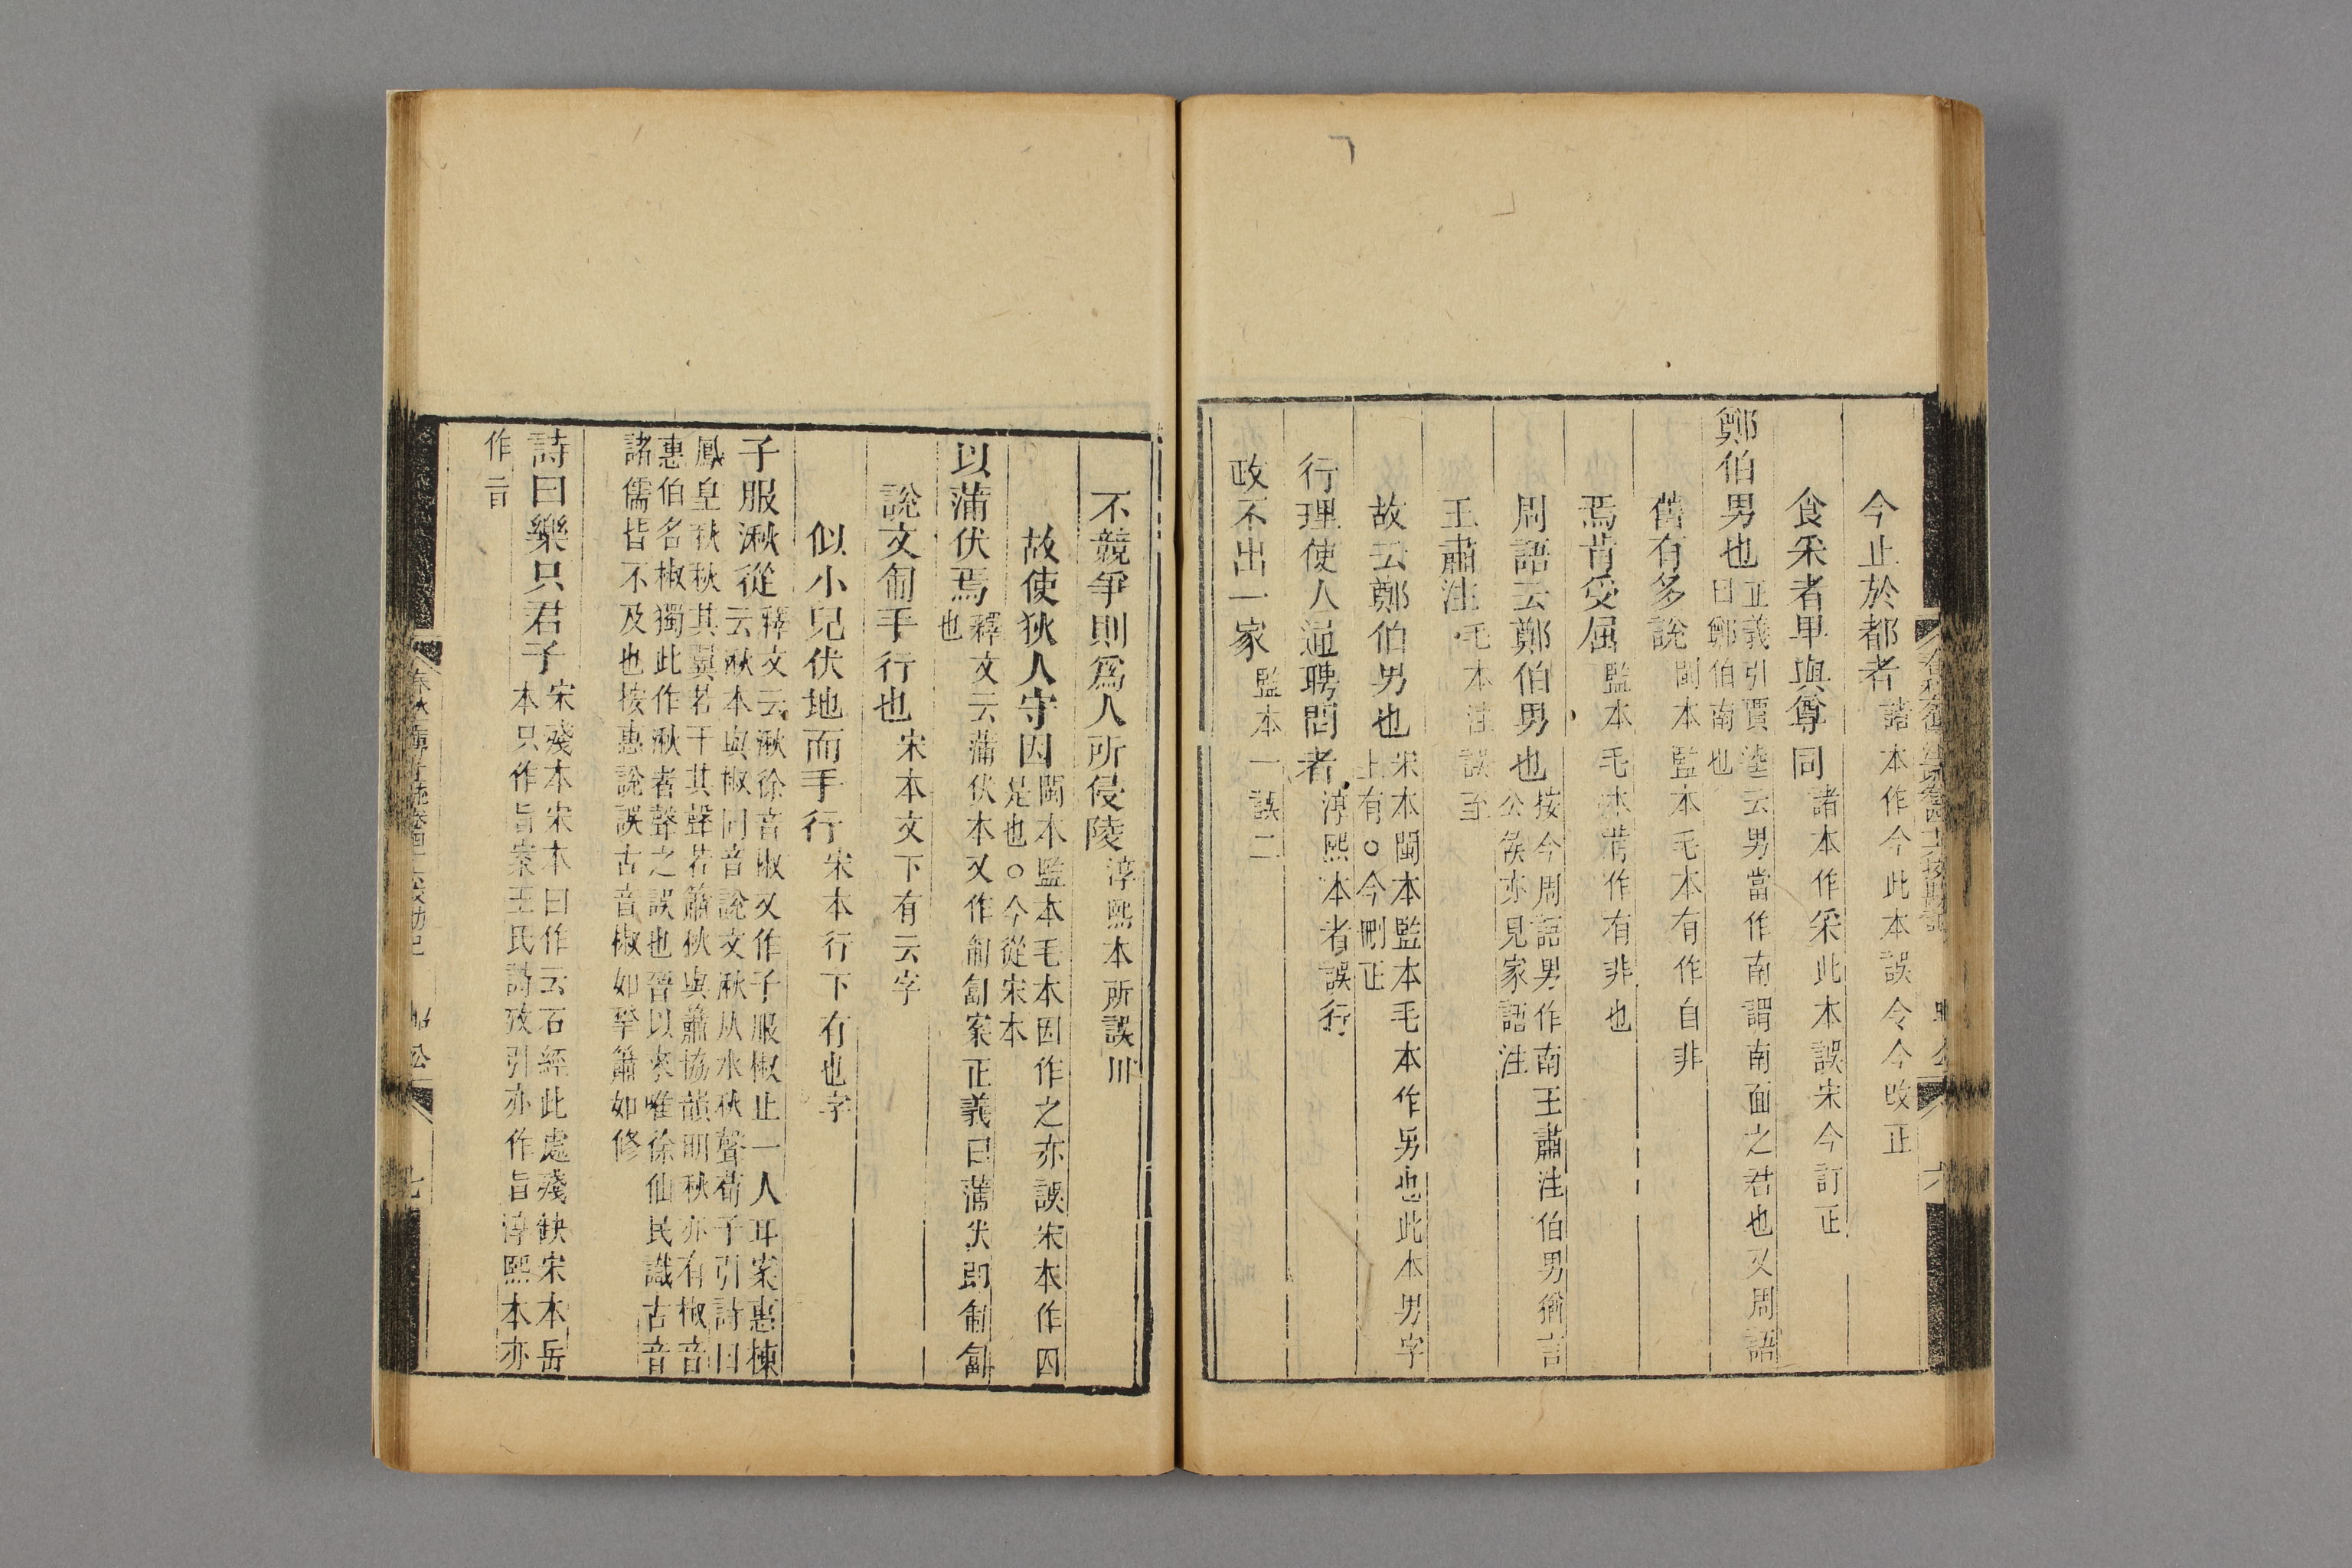 今止於都者諸本作今此本誤令今改正
食采者卑與尊同諸本作采此本誤宋今訂正
鄭伯男也正義引賈逵云男當作南謂南面之君也又周語
曰鄭伯南也
舊有多說閩本監本毛本有作自非
焉肯受屈監本毛本肯作有非也
周語云鄭伯男也按今周語男作南王肅注伯男猶言
公侯亦見家語注
王肅注毛本注誤至
故云鄭伯男也宋本閩本監本毛本作男也此本男字
上有○今刪正
行理使人通聘問者淳熙本者誤行
政不出一家監本一誤二
不競爭則爲人所侵陵淳熙本所誤川
故使狄人守囚閩本監本毛本囚作之亦誤宋本作囚
是也○今從宋本
以蒲伏焉釋文云蒲伏本又作匍匐案正義曰蒲伏即匍匐
也
說文匍手行也宋本文下有云字
似小兒伏地而手行宋本行下有也字
子服湫從釋文云湫徐音椒又作子服椒止一人耳案惠棟
云湫本與椒同音說文湫从水秋聲荀子引詩曰
鳳皇秋秋其翼若干其聲若簫秋與簫協韻明秋亦有椒音
惠伯名椒獨此作湫者聲之誤也晉以來唯徐仙民識古音
諸儒皆不及也按惠說誤古音椒如揫簫如修
詩曰樂只君子宋殘本宋本曰作云石經此處殘缺宋本岳
本只作旨案王氏詩攷引亦作旨淳熙本亦
作旨